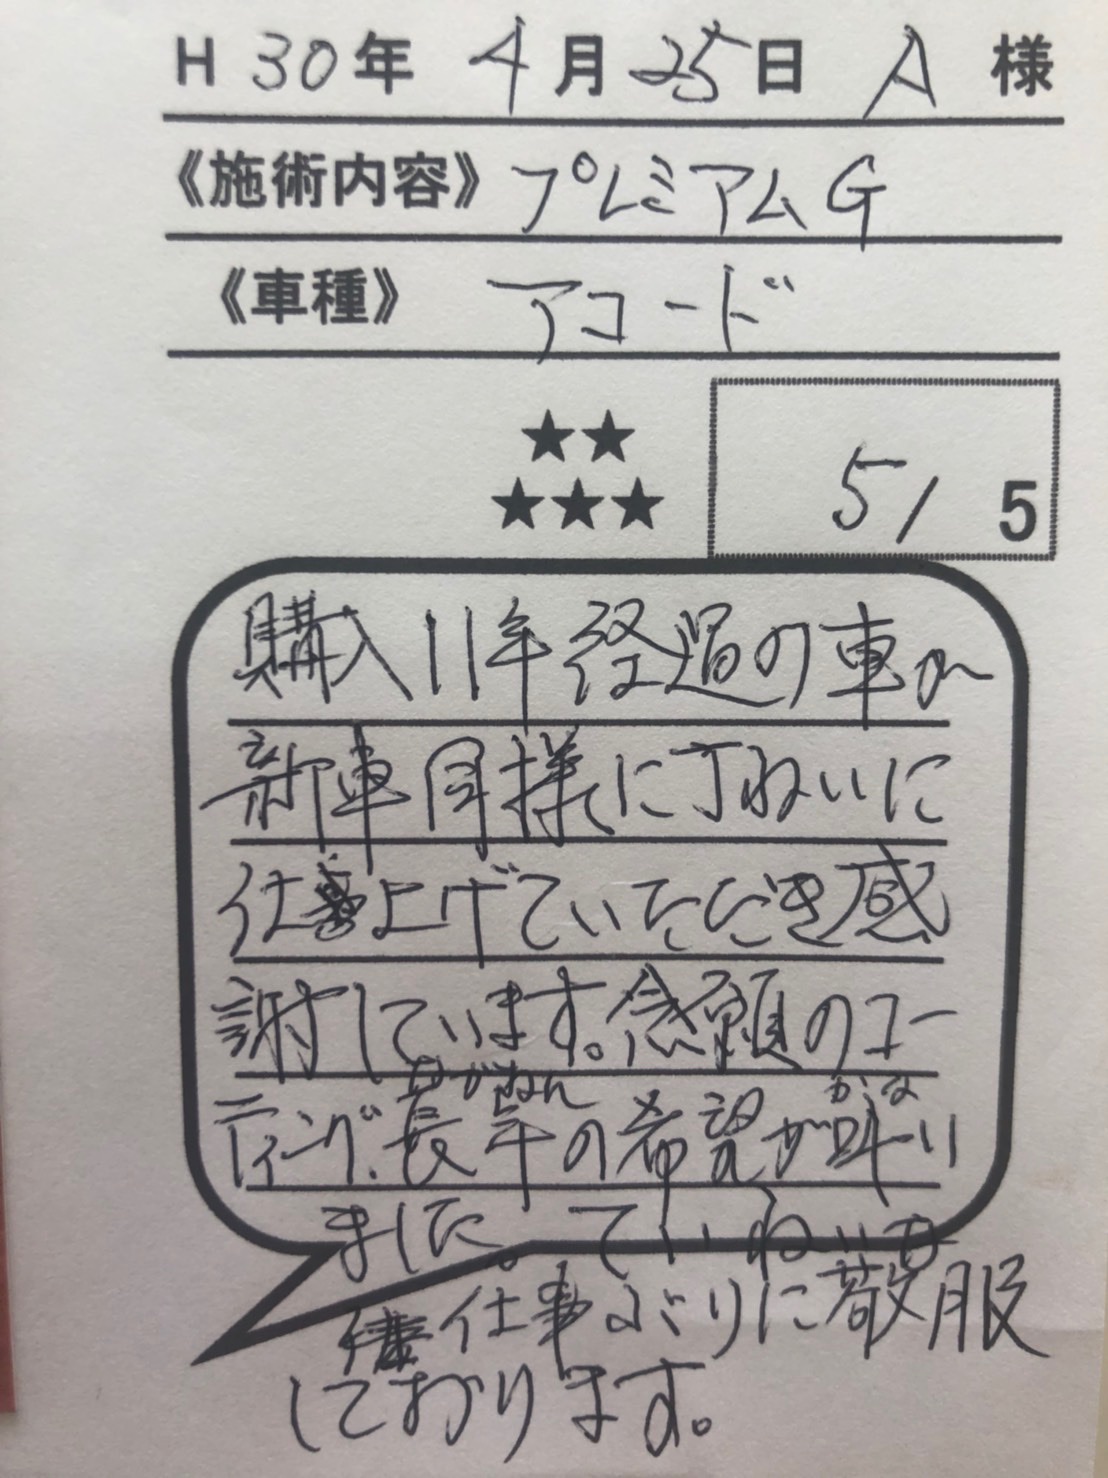 H 30年 4月 25日 A 様
《施術内容》プレミアムG
《車種》アコード
★★
★★★ 5/5
購入11年経過の車が
新車同様に丁ねいに
仕事上げていただき感
謝しています。念願のコー
ながねん かな
ティング、長年の希望が叶い
ました。ていねいな
仕事ぶりに敬服
しております。